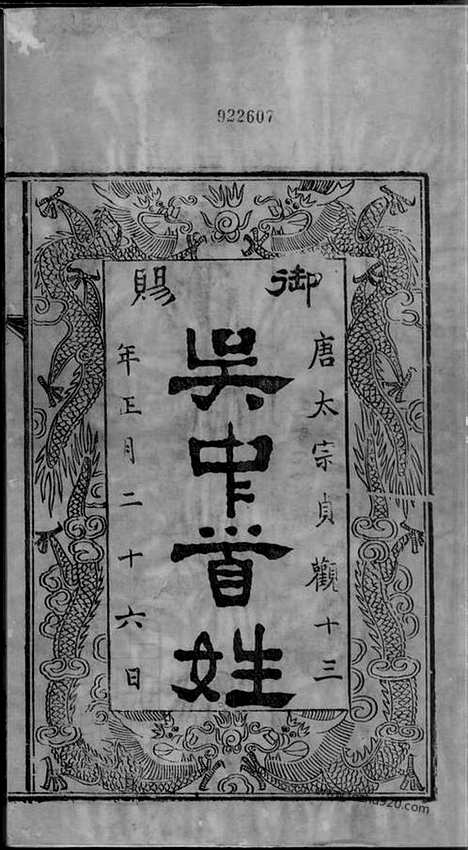 922607
御賜
唐太宗貞觀十三
吳中首姓
年正月二十六日